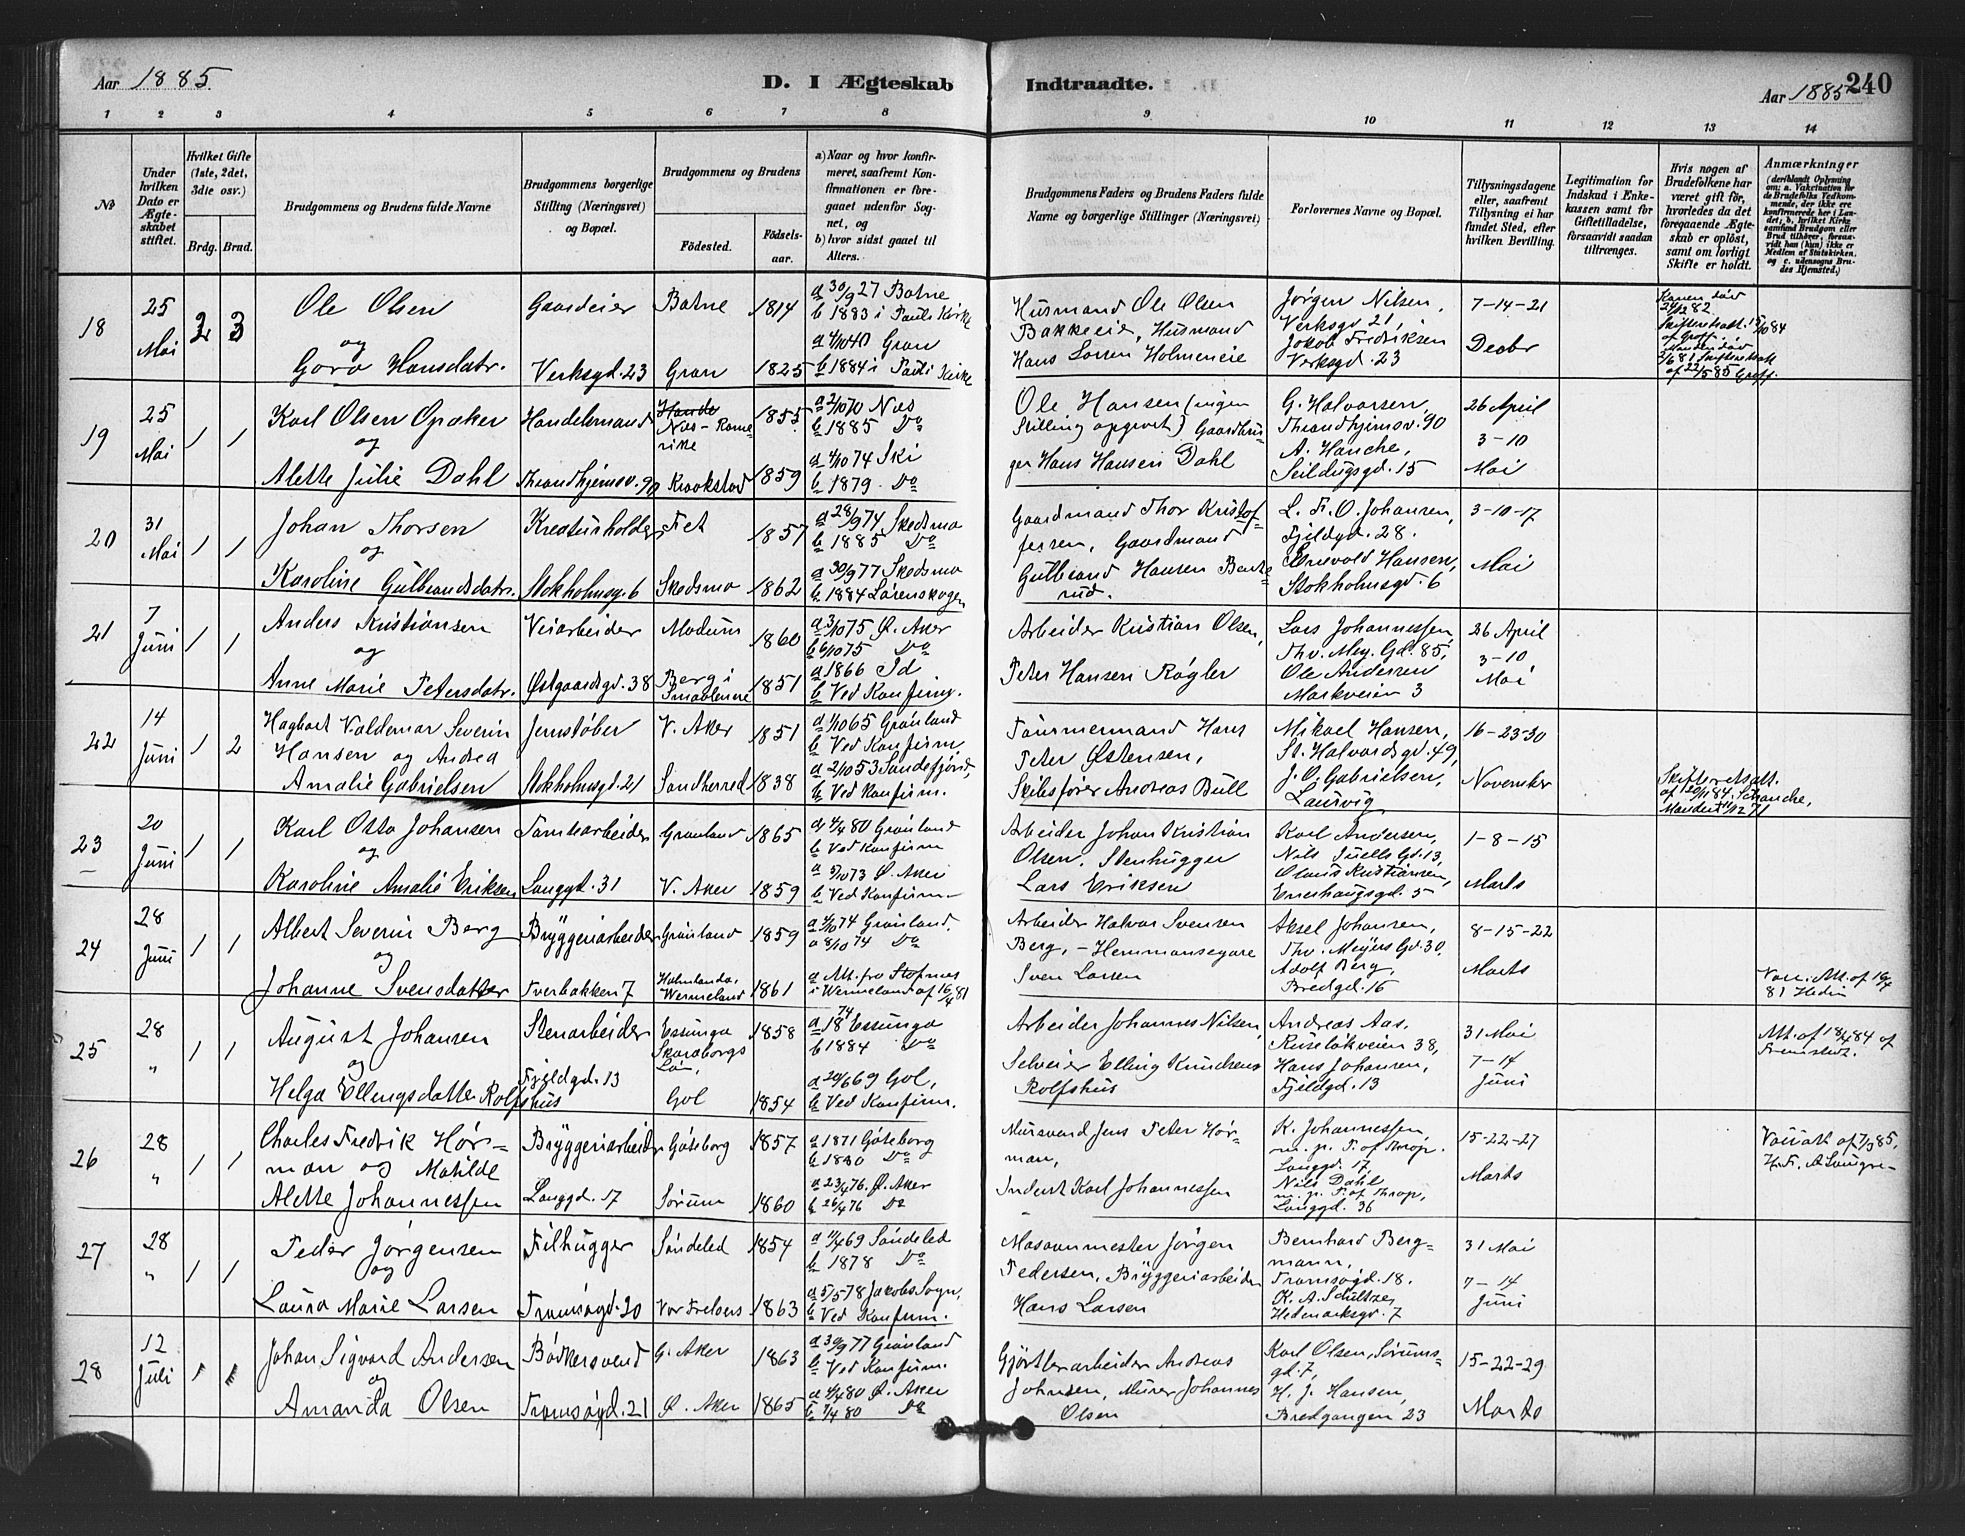 Aar 1885.
D. I Ægteskab
Indtraadte.
Aar 1885
240
1 2 3 4 5 6 7 8 9 10 11 12 13 14
No
Under hvilken Dato er Ægteskabet stiftet.
Hvilket Gifte (1ste, 2det, 3die osv.)
Brdg. Brud.
Brudgommens og Brudens fulde Navne
Brudgommens borgerlige Stilling (Næringsvei) og Bopæl.
Brudgommens og Brudens
Fødested.
Fødselsaar.
a) Naar og hvor konfirmeret, saafremt Konfirmationen er foregaaet udenfor Sognet, og
b) hvor sidst gaaet til Alters.
Brudgommens Faders og Brudens Faders fulde Navne og borgerlige Stillinger (Næringsvei)
Forlovernes Navne og Bopæl.
Tillysningsdagene eller, saafremt Tillysning ei har fundet Sted, efter hvilken Bevilling.
Legitimation for Indskud i Enkekassen samt for Giftetilladelse, forsaavidt saadan tiltrænges.
Hvis nogen af Brudefolkene har været gift før, hvorledes da det foregaaende Ægteskab er opløst, samt om lovligt Skifte er holdt.
Anmærkninger
18
25 Mai
2 3
Ole Olsen
og
Goro Hansdatr.
Gaardeier
Verksgd. 23
Botne
Gran
1814
1825
a 30/9 27 Botne
b 1883 i Pauls Kirke
a 4/10 40 Gran
b 1884 i Pauls Kirke
Husmand Ole Olsen
Bakkeeie, Husmand
Hans Larsen Holmeneie
Jørgen Nilsen,
Verksgd 21,
Jakob Fredriksen
Verksgd. 23
7-14-21
Decbr
19
25 Mai
1 1
Karl Olsen Opaker
og
Alette Julie Dahl
Handelsmand
Throndhjemsv. 90
Næs - Romerike
Kraakstad
1855
1859
a 2/10 70 Næs
b 1885 Do
a 4/10 74 Ski
b 1879 Do
Ole Hansen (ingen
Stilling opgivet) Gaardbruger
Hans Hansen Dahl
G. Halvorsen,
Throndhjemsv. 90
A. Hanche,
Seildugsgd. 15
26 April
3-10
Mai
20
31 Mai
1 1
Johan Thorsen
og
Karoline Gulbrandsdatr.
Kreaturholder
Stokholmsg. 6
Fet
Skedsmo
1857
1862
a 28/9 74 Skedsmo
b 1885 Do
a 30/9 77 Skedsmo
b 1884 Lørenskogen
Gaardmand Thor Kristoffersen,
Gaardmand
Gulbrand Hansen
L. F. O. Johansen,
Fjeldgd. 28.
Enevold Hansen,
Stokholmsgd. 6
3-10-17
Mai
21
7 Juni
1 1
Anders Kristiansen
og
Anne Marie Petersdatr.
Veiarbeider
Østgaardsgd. 38
Modum
Berg i Smaalenene
1860
1851
a 3/10 75 Ø. Aker
b 6/10 75 Do
a 1866 Id
b Ved Konfirm.
Arbeider Kristian Olsen,
Peter Hansen Røgler
Lars Johannessen,
Thv. Mey. Gd. 85,
Ole Andersen
Markveien 3
26 April
3-10
Mai
22
14 Juni
1 2
Hagbart Valdemar Severin
Hansen og Andrea
Amalie Gabrielsen
Jernstøber
Stokholmsgd. 21
V. Aker
Sandherred
1851
1838
a 1/10 65 Grønland
b Ved Konfirm
a 2/10 53 Sandefjord,
b Ved Konfirm.
Tømmermand Hans
Peter Østensen,
Skibsfører Andreas Bull
Mikael Hansen,
St. Halvardsgd. 49,
J. O. Gabrielsen,
Laurvig
16-23-30
November
23
20 Juni
1 1
Karl Otto Johansen
og
Karoline Amalie Eriksen
Tomtearbeider
Langgd. 31
Grønland
V. Aker
1865
1859
a 4/4 80 Grønland
b Ved Konfirm
a 5/10 73 Ø. Aker
b Ved Konfirm.
Arbeider Johan Kristian
Olsen. Stenhugger
Lars Eriksen
Karl Andersen,
Nils Juells Gd. 13,
Olaus Kristiansen,
Enerhaugsgd. 5
1-8-15
Marts
24
28 Juni
1 1
Albert Severin Berg
og
Johanne Svensdatter
Bryggeriarbeider
Tverbakken 7
Grønland
Wermeland
1859
1861
a 4/10 74 Grønland.
a 8/10 74 Do
i Wermeland af 16/4 81
Arbeider Halvor Svensen
Berg, - Hemmansegare
Sven Larsen
Aksel Johansen,
Thv. Meyers Gd. 30,
Adolf Berg,
Bredgd. 16
8-15-22
Marts
25
28 "
1 1
August Johansen
og
Helga Ellengsdatter Rolfshus
Stenarbeider
Fjeldgd. 13
Essunga
Skaraborgs Län,
Gol
1858
1854
a 1874 Essunga
b 1884 Do
a 20/6 69 Gol,
b Ved Konfirm.
Arbeider Johannes Nilsen,
Selveier Elling Knudsen
Rolfshus
Andreas Aas,
Ruseløkveien 38,
Hans Johansen,
Fjeldgd. 13
31 Mai
7-14
Juni
26
28 "
1 1
Charles Fredrik Hörman
og Matilde
Alette Johannessen
Bryggeriarbeider
Langgd. 17
Göteborg
Sørum
1857
1860
a 1871 Göteborg
b 1880 Do
a 23/4 76. Ø. Aker
b 26/4 76 Do
Murarend Jens Peter Hörman,
Inderst Karl Johannessen
K. Johannessen
Langgd. 17,
Nils Dahl
Langgd. 36
15-22-27
Marts
27
28 "
1 1
Peder Jørgensen
og
Laura Marie Larsen
Filhugger
Tromsøgd. 20
Søndeled
Vor Frelsers
1854
1863
a 1/4 69 Søndeled
b 1878 Do
a 5/5 78 Jakobs Sogn.
b Ved Konfirm.
Masovnmester Jørgen
Pedersen, Bryggeriarbeider
Hans Larsen
Bernhard Bergmann,
Tromsøgd. 18.
K. A. Schultze,
Hedemarksgd. 7
31 Mai
7-14
Juni
28
12 Juli
1 1
Johan Sigvard Andersen
og
Amanda Olsen
Bødkersvend
Tromsøgd. 21
G. Aker
Ø. Aker
1863
1865
a 30/9 77 Grønland
b Ved Konfirm.
a 4/4 80 Ø. Aker
b 7/4 80 Do
Gjørtlerarbeider Andreas
Johnsen, Murer Johannes
Olsen
Karl Olsen, Sørumsgd. 7,
H. J. Hansen,
Bredgangen 23
15-22-29
Marts